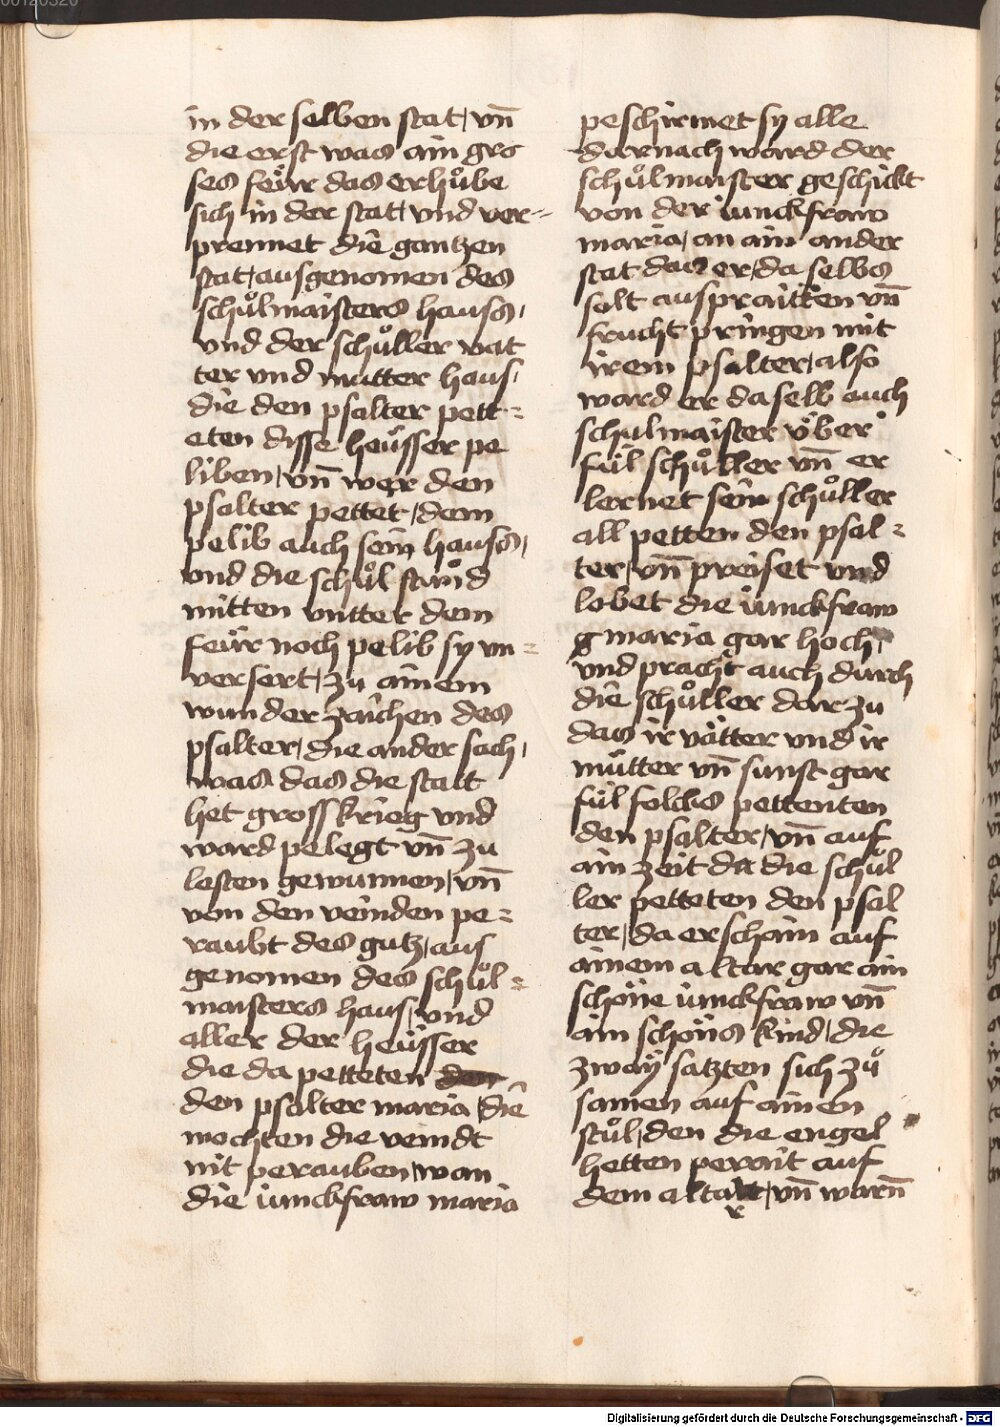 00120320
in der selben stat / vn̄
die erst was ain gro
ses feẅr das erhůbe
sich in der stat / vnd ver=
prennet die gantzen
stat / ausgenomen des
schůlmaisters hauss /
vnd der schůller vat
ter vnd mutter haus /
die den psalter pett=
eten disse heẅsser pe
liben / vn̄ wer den
psalter pettet / dem
pelib auch sein hauss /
vnd die schůl stůnd
mitten vntter dem
feẅr noch pelib sy vn=
versert / zu ainem
wunderzaichen des
psalter / die ander sach /
was das die statt
het gross krieg vnd
ward pelegt vn̄ zu
lesten gewunnen / vn̄
von den veinden pe=
raubt des gutz / aus
genomen des schůl=
maisters haus / vnd
aller der heẅsser
die da petteten den
den psalter maria / die
mochten die veindt
nit perauben / wan
die iunckfraw maria
peschirmet sy alle
darnach ward der
schůlmaister geschickt
von der iunckfraw
maria / an ain ander
stat das er / da selbs
solt auspraitten vn̄
frucht pringen mit
irem psalter / also
ward er da selb auch
schulmaister v̈ber
fül schůller vn̄ er
lernet sein schůller
all petten den psal=
ter / vn̄ preiset vnd
lobet die iunckfraw
g maria gar hoch /
vnd pracht auch durch
die schůller dar zu
das ir vätter vnd ir
mütter vn̄ sunst gar
fül folcks pettenten
den psalter / vn̄ auf
ain zeit da die schůl
ler petteten den psal
ter / da erschain auf
ainem altar gar ain
schöne iunckfraw vn̄
ain schöns kind / die
zwaÿ satzten sich zů
samen auf ainen
stůl / den die engel
hetten perait auf
dem altar / vn̄ warn̄
r
Digitalisierung gefördert durch die Deutsche Forschungsgemeinschaft - DFG